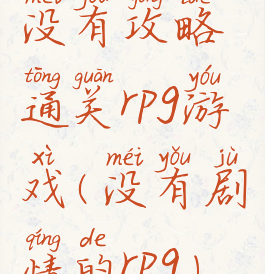 méi yǒu gōng lüè
没有攻略
tōng guān yóu
通关rpg游
xì méi yǒu jù
戏(没有剧
qíng de
情的rpg)